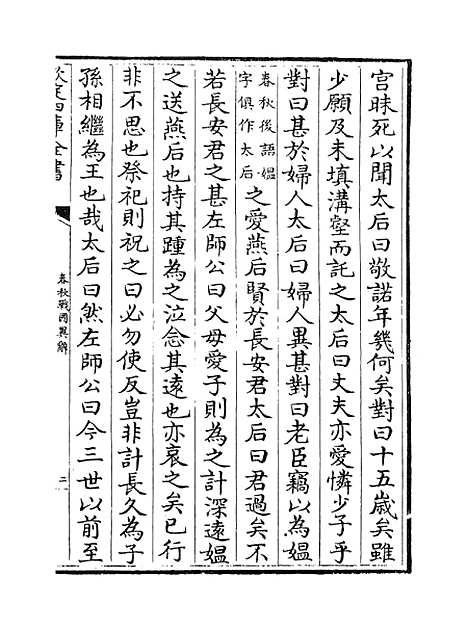 宫昧死以聞太后曰敬諾年㡬何矣對曰十五歳矣雖
少願及未填溝壑而託之太后曰丈夫亦愛憐少子乎
對曰甚於婦人太后曰婦人異甚對曰老臣竊以為媪
春秋後語媪
字俱作太后
之愛燕后賢於長安君太后曰君過矣不
若長安君之甚左師公曰父母愛子則為之計深遠媪
之送燕后也持其踵為之泣念其遠也亦哀之矣已行
非不思也祭祀則祝之曰必勿使反豈非計長久為子
孫相繼為王也哉太后曰然左師公曰今三世以前至
欽定四庫全書
春秋戰國異辭
二